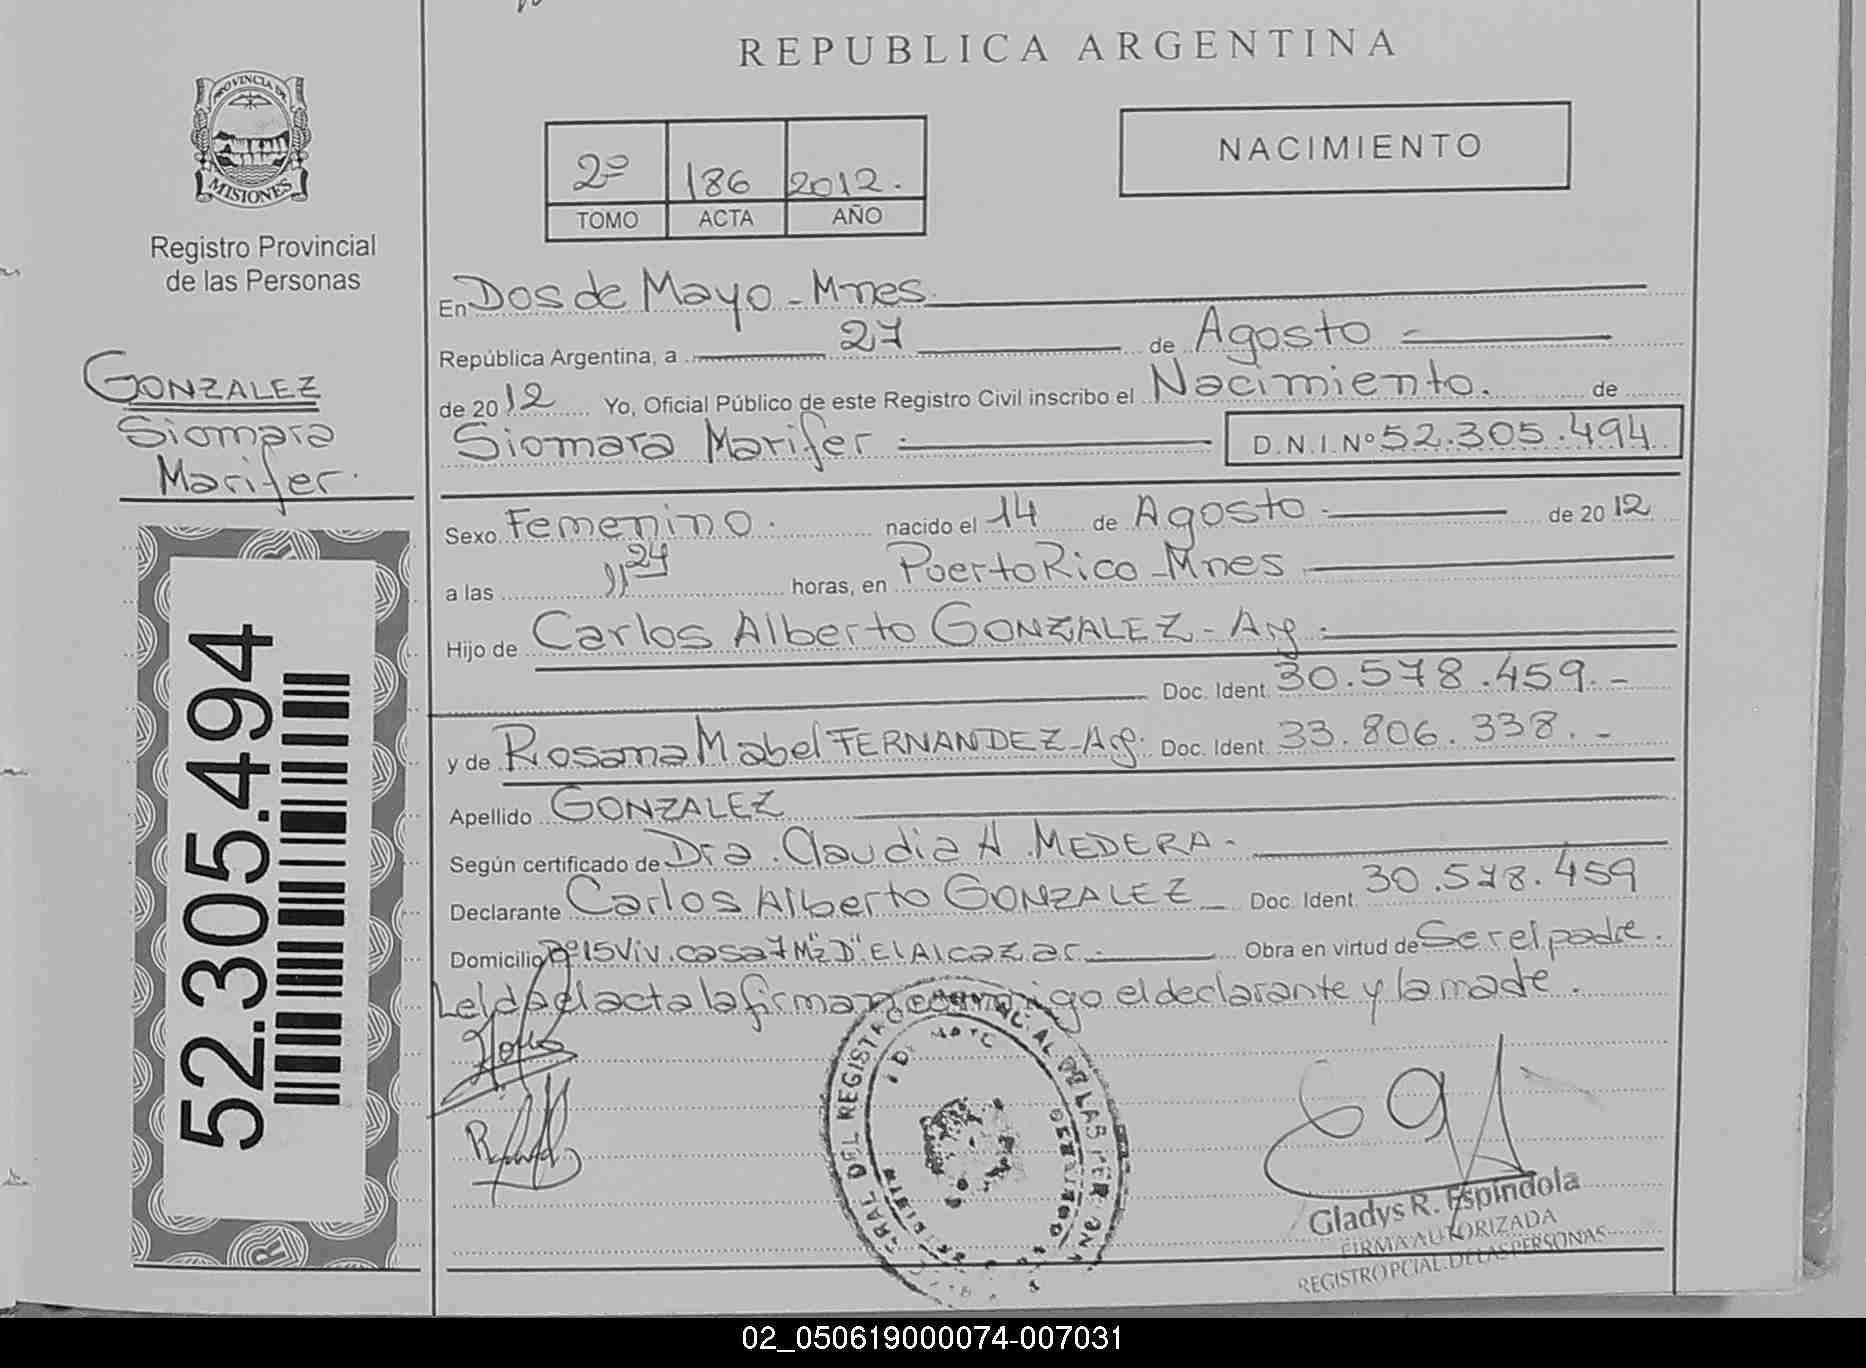 REPUBLICA ARGENTINA
PROVINCIA DE
MISIONES
Registro Provincial
de las Personas
2º 186 2012.
TOMO ACTA AÑO
NACIMIENTO
GONZALEZ
Siomara
Marifer.
52.305.494
En Dos de Mayo - Mnes.
República Argentina, a 27 de Agosto
de 2012 Yo, Oficial Público de este Registro Civil inscribo el Nacimiento. de
Siomara Marifer D.N.I.Nº 52.305.494
Sexo Femenino. nacido el 14 de Agosto de 2012
a las 11 24 horas, en Puerto Rico - Mnes
Hijo de Carlos Alberto GONZALEZ - Arg.
Doc. Ident. 30.578.459.-
y de Rosana Mabel FERNANDEZ - Arg. Doc. Ident. 33.806.338.-
Apellido GONZALEZ
Según certificado de Dra. Claudia A. MEDERA -
Declarante Carlos Alberto GONZALEZ Doc. Ident. 30.578.459
Domicilio Bº 15 Viv. casa 7 Mz "D" El Alcazar. Obra en virtud de Ser el padre.
Leida el acta la firman conmigo el declarante y la madre.
DEL REGISTRO DE LAS PER
Gladys R. Espíndola
FIRMA AUTORIZADA
REGISTRO PCIAL. DE LAS PERSONAS
02_050619000074-007031